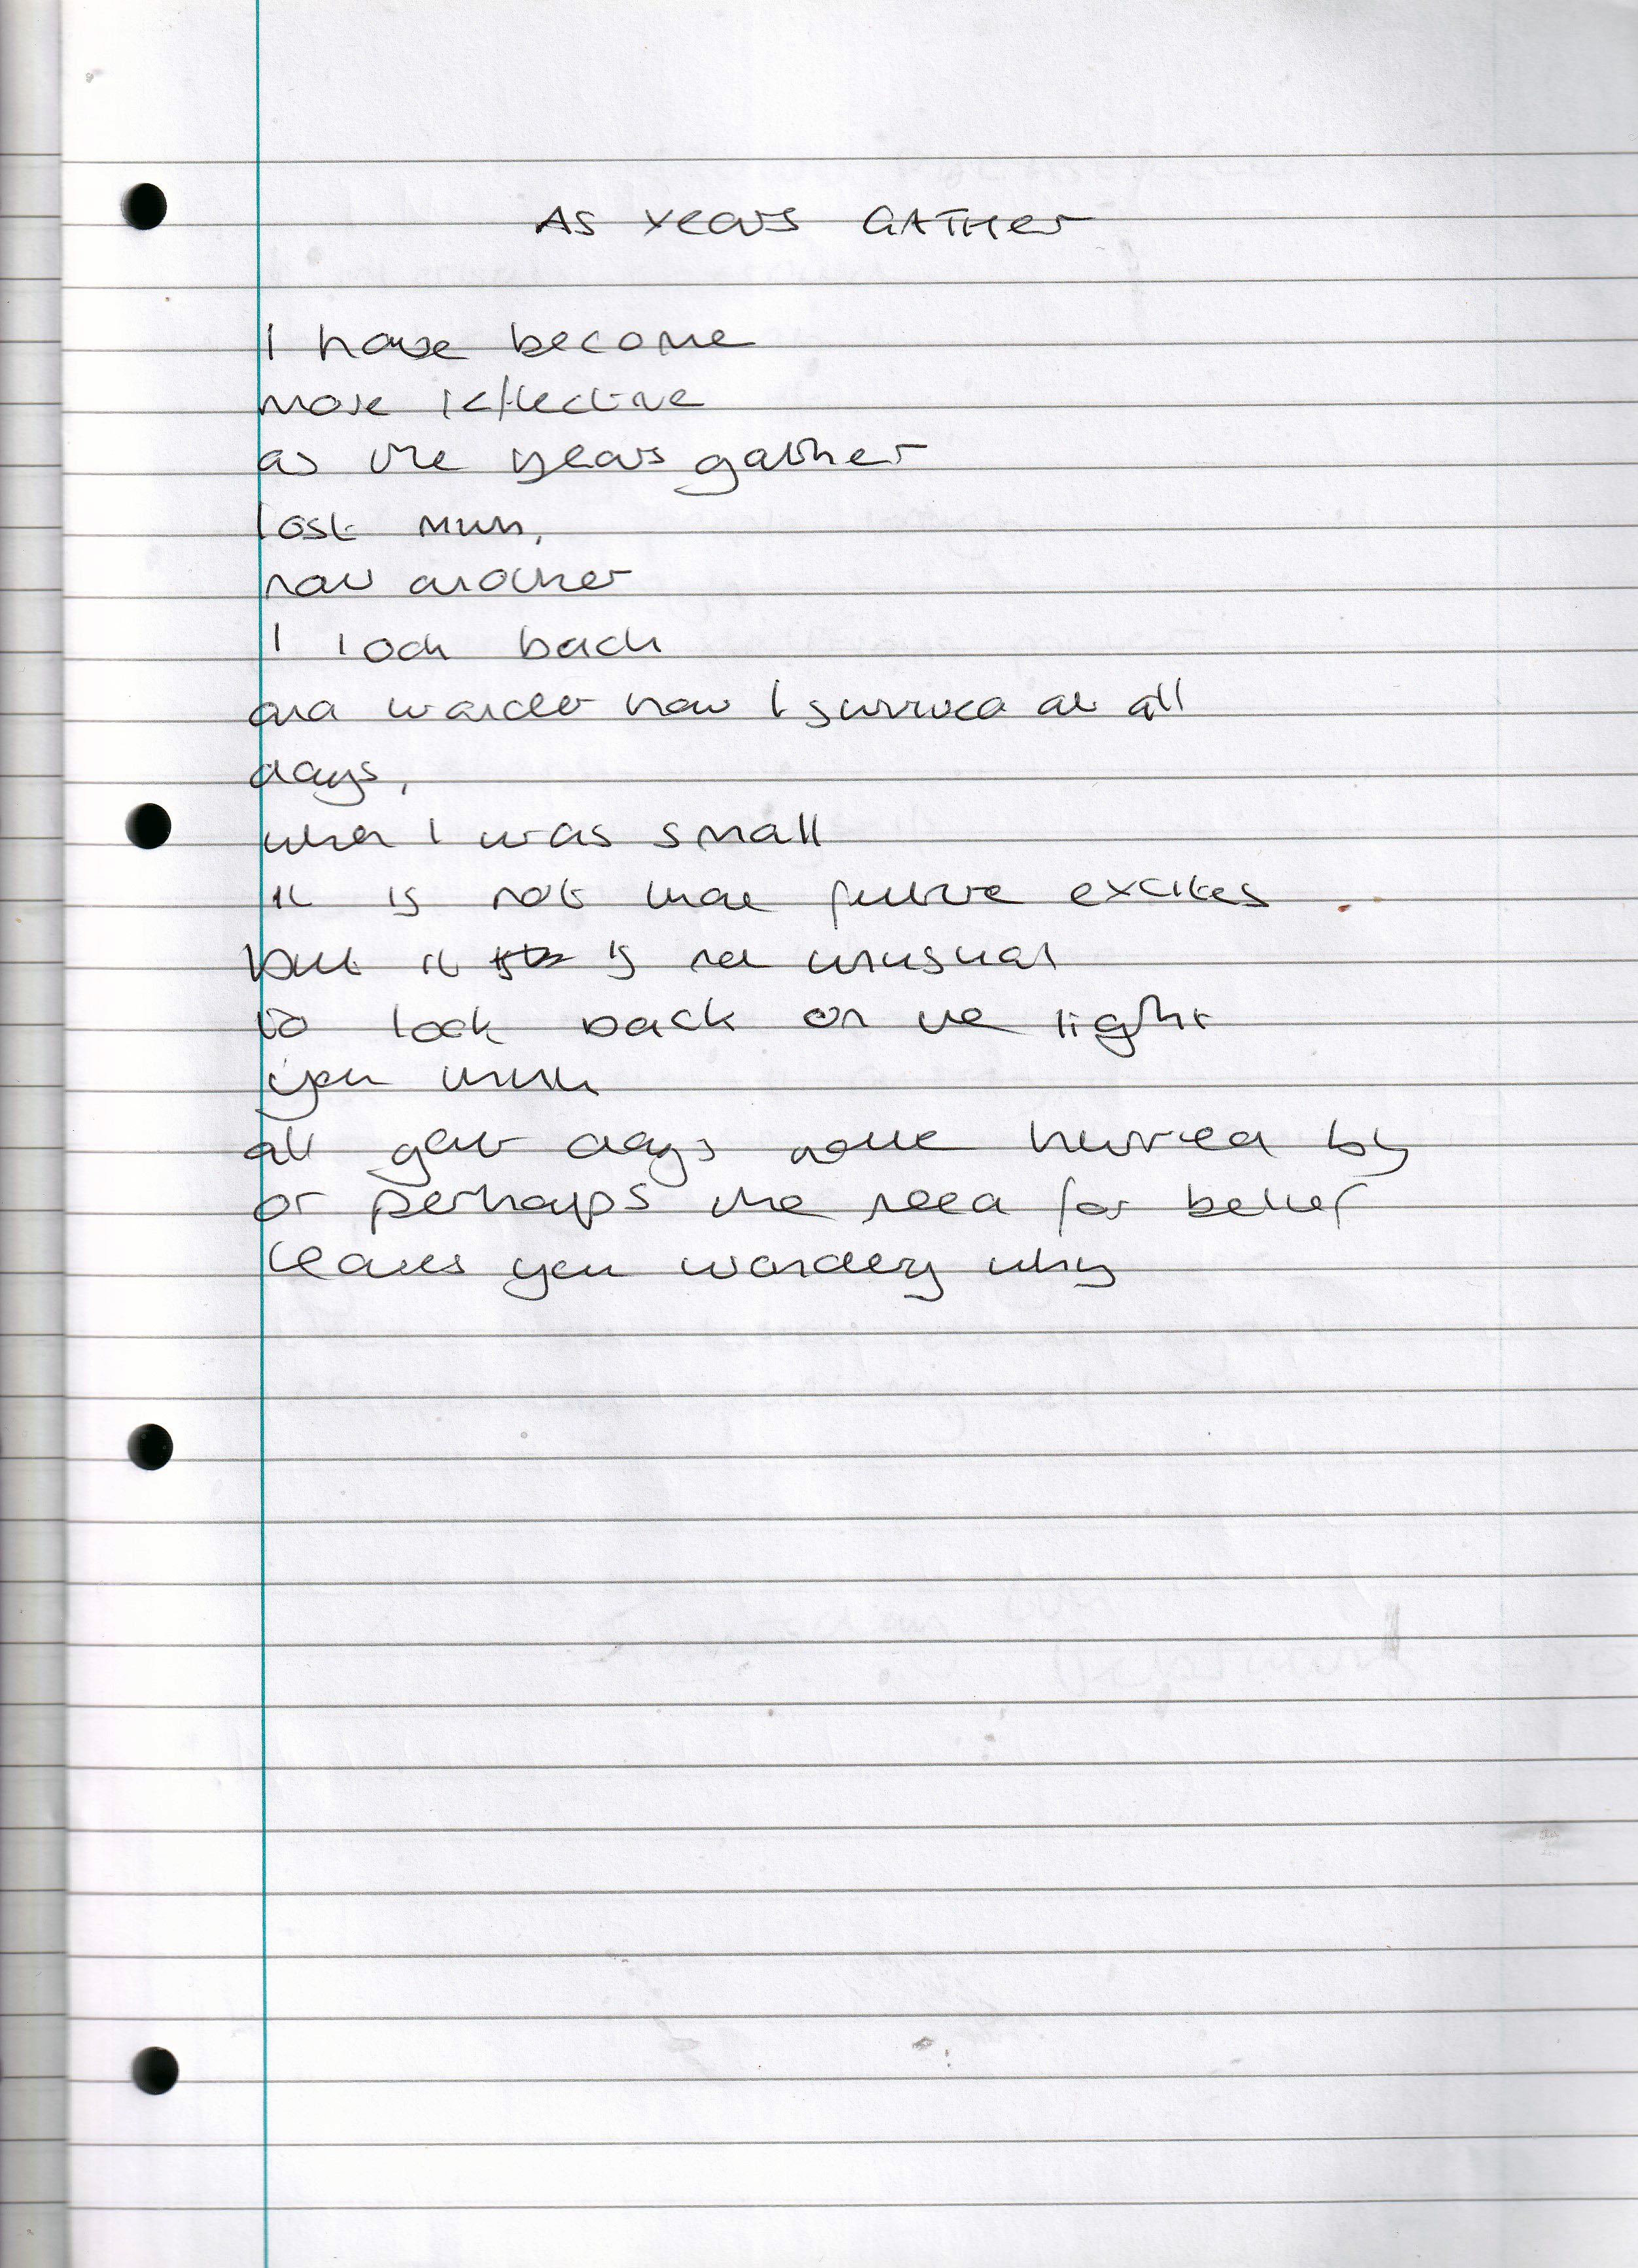 AS YEARS GATHER
I have become
more reflective
as the years gather
lost mum,
now another
I look back
and wonder how I survived at all
days,
when I was small
it is not that future excites
but it is not unusual
to look back on the light
you think
all your days have hurried by
or perhaps the need for belief
leaves you wondering why